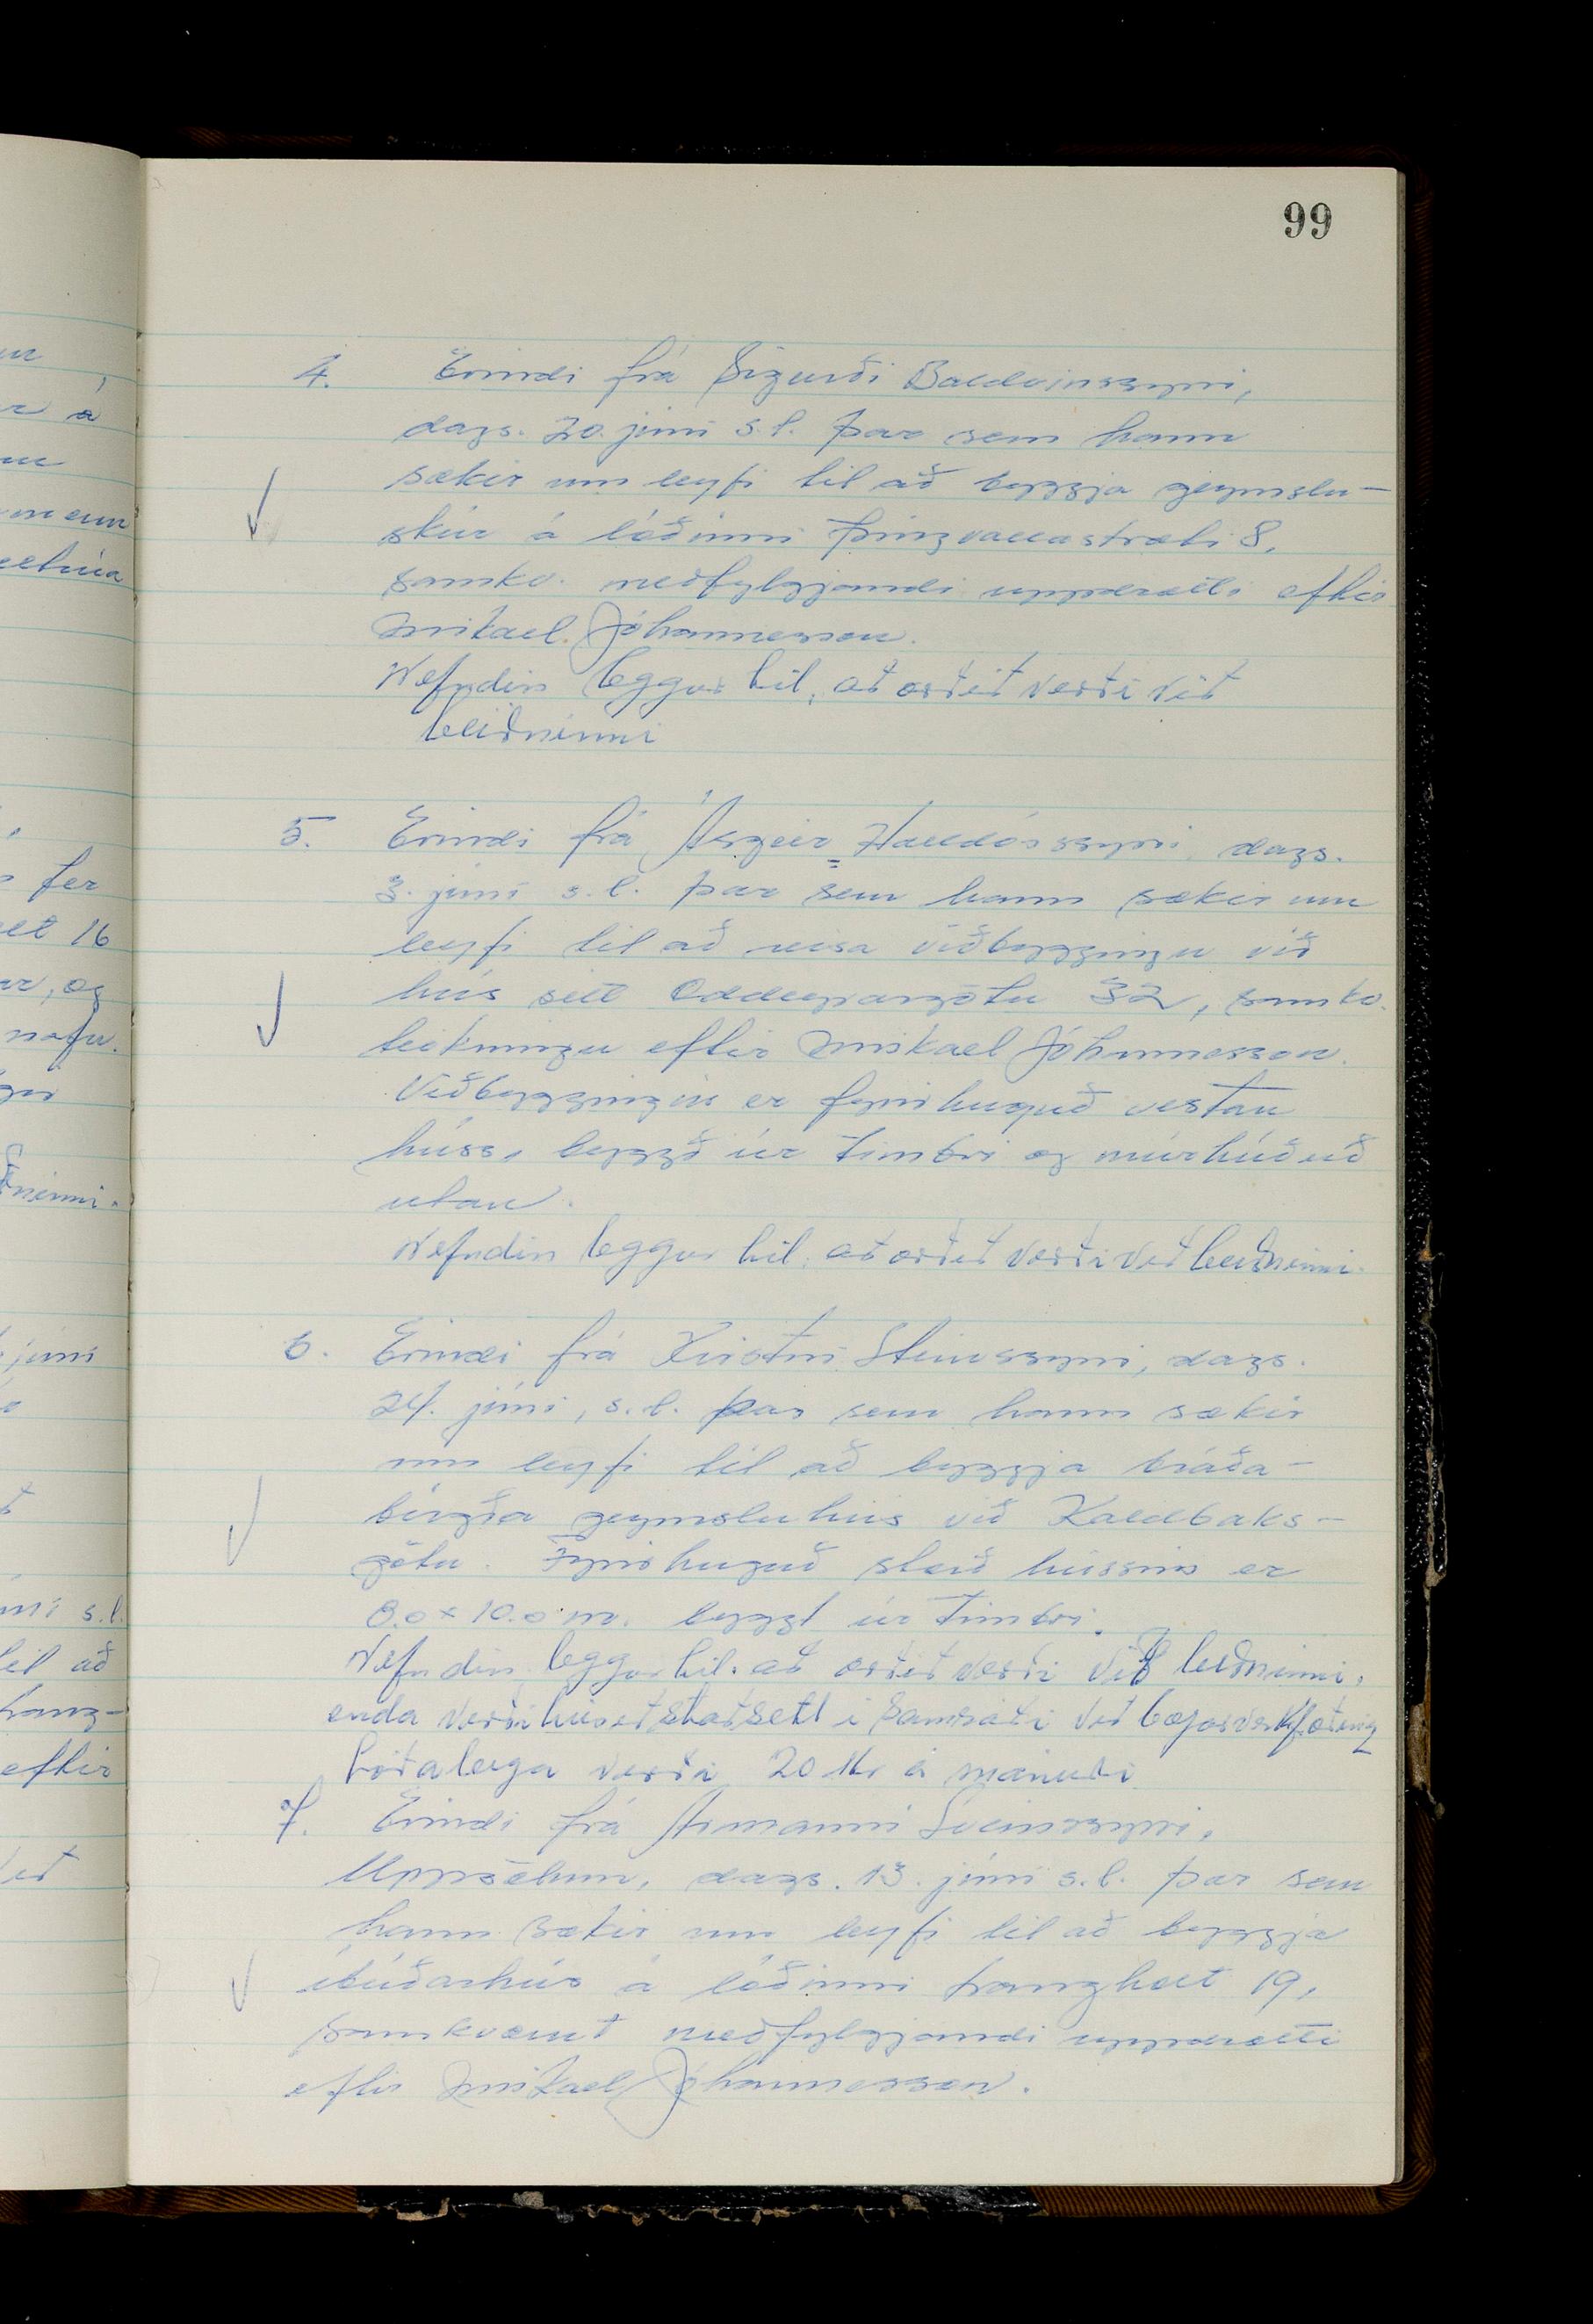 99
4. Erindi frá Sigurði Baldvinssyni,
dags. 20. júní s.l. þar sem hann
sækir um leyfi til að byggja geymslu-
skúr á lóðinni Þingvallastræti 8,
samkv. meðfylgjandi uppdrætti eftir
Mikael Jóhannesson.
Nefndin leggur til, að orðið verði við
beiðninni
5. Erindi frá Ásgeir Halldórssyni, dags.
3. júní s.l. þar sem hann sækir um
leyfi til að reisa viðbyggingu við
hús sitt Oddeyrargötu 32, samkv.
teikningu eftir Mikael Jóhannesson.
Viðbyggingin er fyrirhuguð vestan
húss, byggð úr timbri og múrhúðuð
utan.
Nefndin leggur til, að orðið verði við beiðninni.
6. Erindi frá Kristni Steinssyni, dags.
24. júní, s.l. þar sem hann sækir
um leyfi til að byggja bráða-
birgða geymsluhús við Kaldbaks-
götu. Fyrirhuguð stærð hússins er
8.0 x 10.0 m. byggt úr timbri.
Nefndin leggur til, að orðið verði við beiðninni,
enda verði húsið staðsett í samráði við bæjarverkfræðing
Lóðaleiga verði 20 kr á mánuði
7. Erindi frá Ármanni Sveinssyni,
Uppsölum, dags. 13. júní s.l. þar sem
hann sækir um leyfi til að byggja
íbúðarhús á lóðinni Langholt 19,
samkvæmt meðfylgjandi uppdrætti
eftir Mikael Jóhannesson.